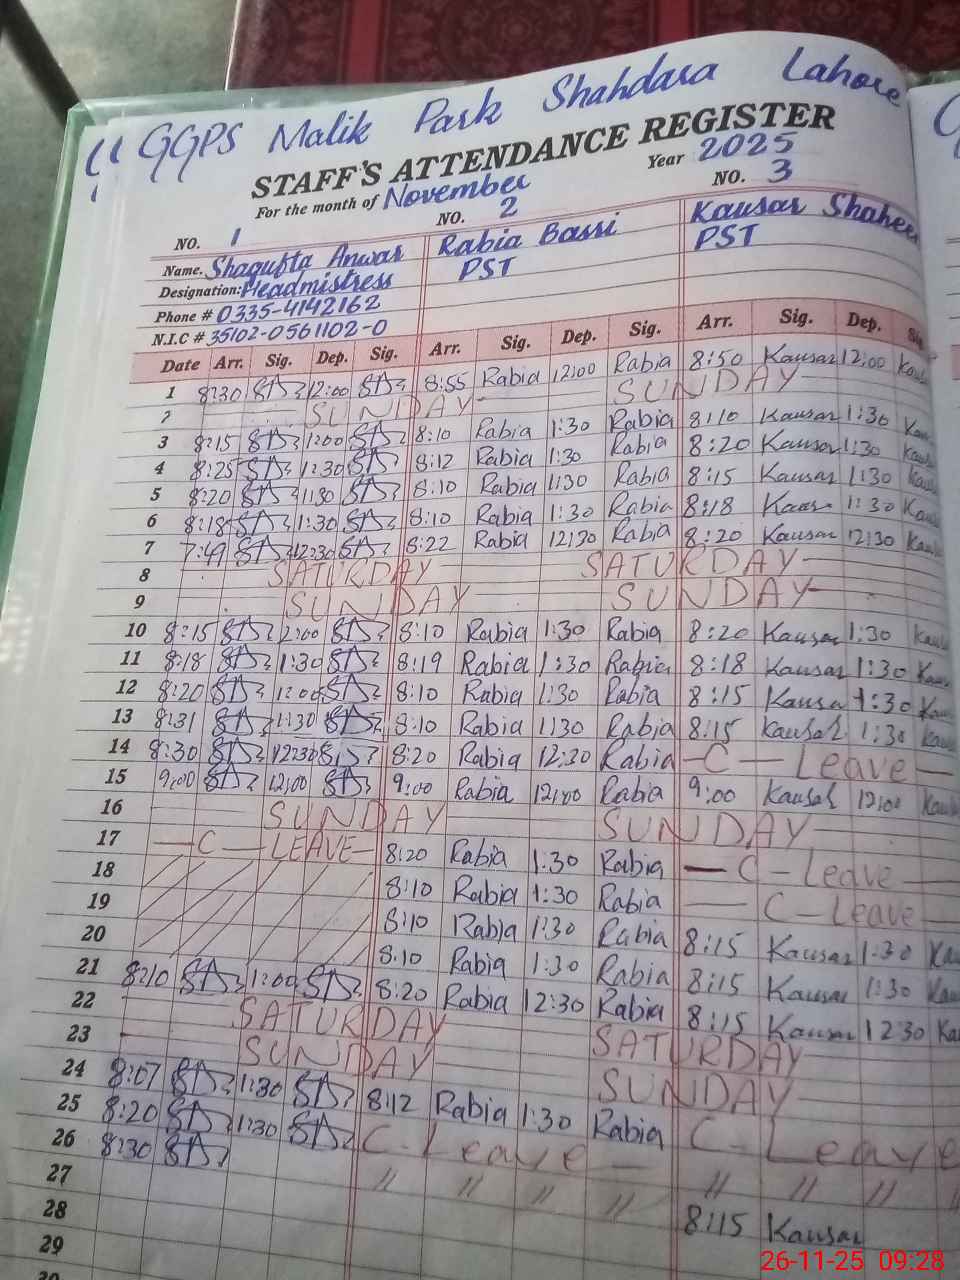 GGPS Malik Park Shahdara Lahore
STAFF'S ATTENDANCE REGISTER
For the month of November Year 2025
NO. 1 NO. 2 NO. 3
Name. Shagufta Anwar Rabia Bassi Kausar Shaheen
Designation: Headmistress PST PST
Phone # 0335-4142162
N.I.C # 35102-0561102-0
Date Arr. Sig. Dep. Sig. Arr. Sig. Dep. Sig. Arr. Sig. Dep. Sig.
1 8:30 12:00 8:55 Rabia 12:00 Rabia 8:50 Kausar 12:00
2 SUNDAY SUNDAY
3 8:15 1:00 8:10 Rabia 1:30 Rabia 8:10 Kausar 1:30
4 8:25 1:30 8:12 Rabia 1:30 Rabia 8:20 Kausar 1:30
5 8:20 1:30 8:10 Rabia 1:30 Rabia 8:15 Kausar 1:30
6 8:18 1:30 8:10 Rabia 1:30 Rabia 8:18 Kausar 1:30
7 7:49 12:30 8:22 Rabia 12:30 Rabia 8:20 Kausar 12:30
8 SATURDAY SATURDAY
9 SUNDAY SUNDAY
10 8:15 8:10 Rabia 1:30 Rabia 8:20 Kausar 1:30
11 8:18 1:30 8:19 Rabia 1:30 Rabia 8:18 Kausar 1:30
12 8:20 1:00 8:10 Rabia 1:30 Rabia 8:15 Kausar 1:30
13 8:31 1:30 8:10 Rabia 1:30 Rabia 8:15 Kausar 1:30
14 8:30 12:30 8:20 Rabia 12:30 Rabia - C - Leave -
15 9:00 12:00 9:00 Rabia 12:00 Rabia 9:00 Kausar 12:00
16 SUNDAY SUNDAY
17 - C - LEAVE - 8:20 Rabia 1:30 Rabia - C - Leave
18 8:10 Rabia 1:30 Rabia - C - Leave
19 8:10 Rabia 1:30 Rabia 8:15 Kausar 1:30
20 8:10 Rabia 1:30 Rabia 8:15 Kausar 1:30
21 8:10 1:00 8:20 Rabia 12:30 Rabia 8:15 Kausar 12:30
22 SATURDAY SATURDAY
23 SUNDAY SUNDAY
24 8:07 1:30 8:12 Rabia 1:30 Rabia C - Leave
25 8:20 1:30 C - Leave - " " " "
26 8:30 " " " " 8:15 Kausar
27
28
29
26-11-25 09:28